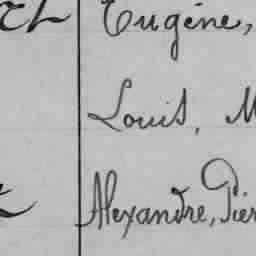 Eugène,
Louis, M
Alexandre, Pier